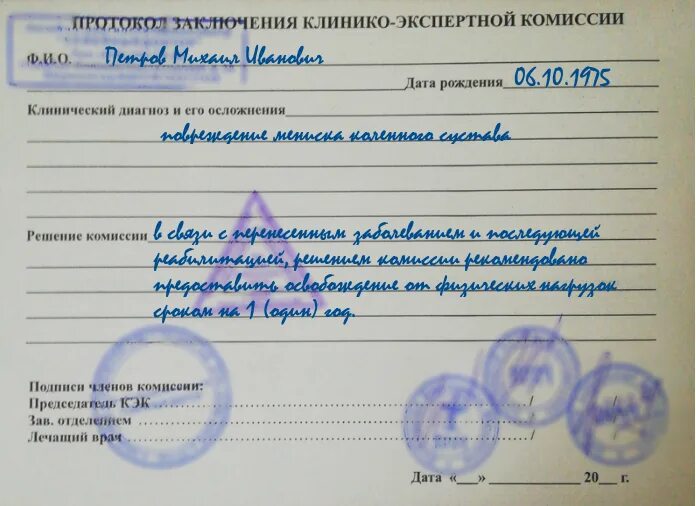 ПРОТОКОЛ ЗАКЛЮЧЕНИЯ КЛИНИКО-ЭКСПЕРТНОЙ КОМИССИИ
Ф.И.О. Петров Михаил Иванович
Дата рождения 06.10.1975
Клинический диагноз и его осложнения
повреждение мениска коленного сустава
Решение комиссии в связи с перенесенным заболеванием и последующей
реабилитацией, решением комиссии рекомендовано
предоставить освобождение от физических нагрузок
сроком на 1 (один) год.
Подписи членов комиссии:
Председатель КЭК / /
Зав. отделением / /
Лечащий врач / /
Дата «___» ____________ 20___ г.